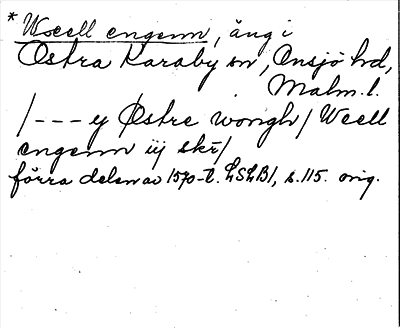 * Weell engenn, äng i
Östra Karaby sn, Onsjö hd,
Malm. l.
/--- y Østre wongh/ Weell
engenn iij skr/
förra delen av 1570-t. LSLB1, s. 115. orig.